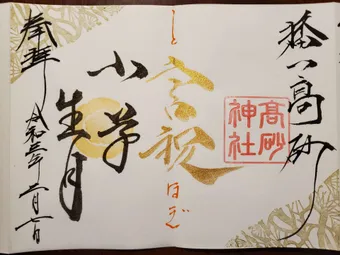 播州高砂
高砂
神社
こと
言祝
ほぎ
小草
生月
奉拝
令和三年二月七日